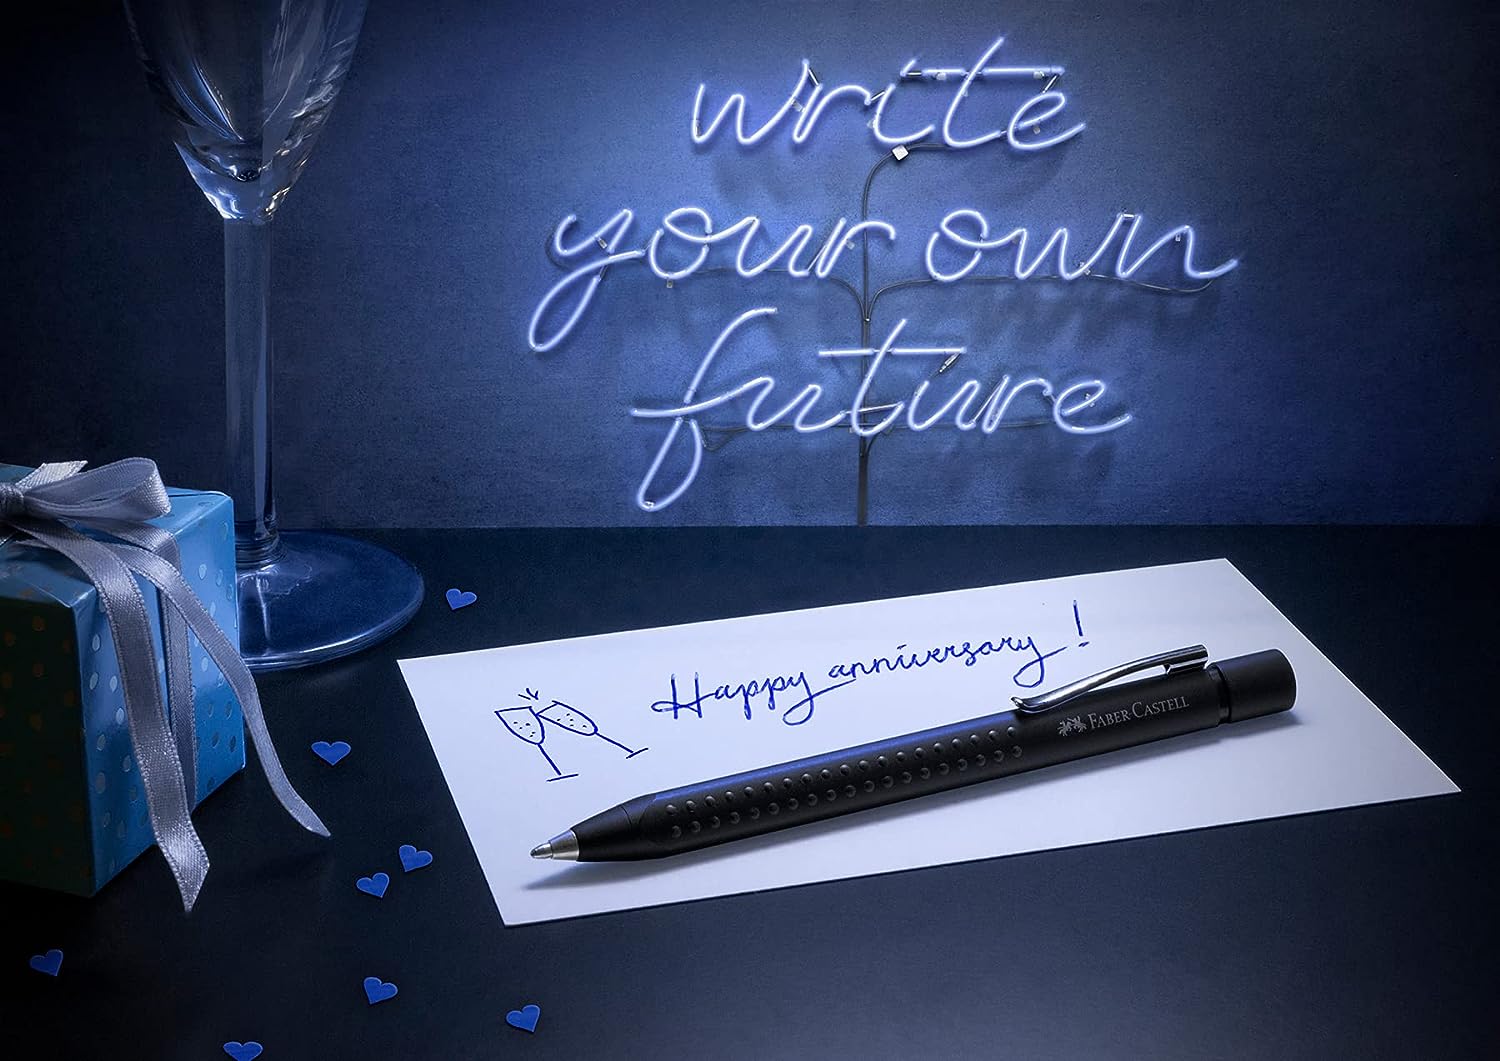 write
your own
future
Happy anniversary!
FABER-CASTELL